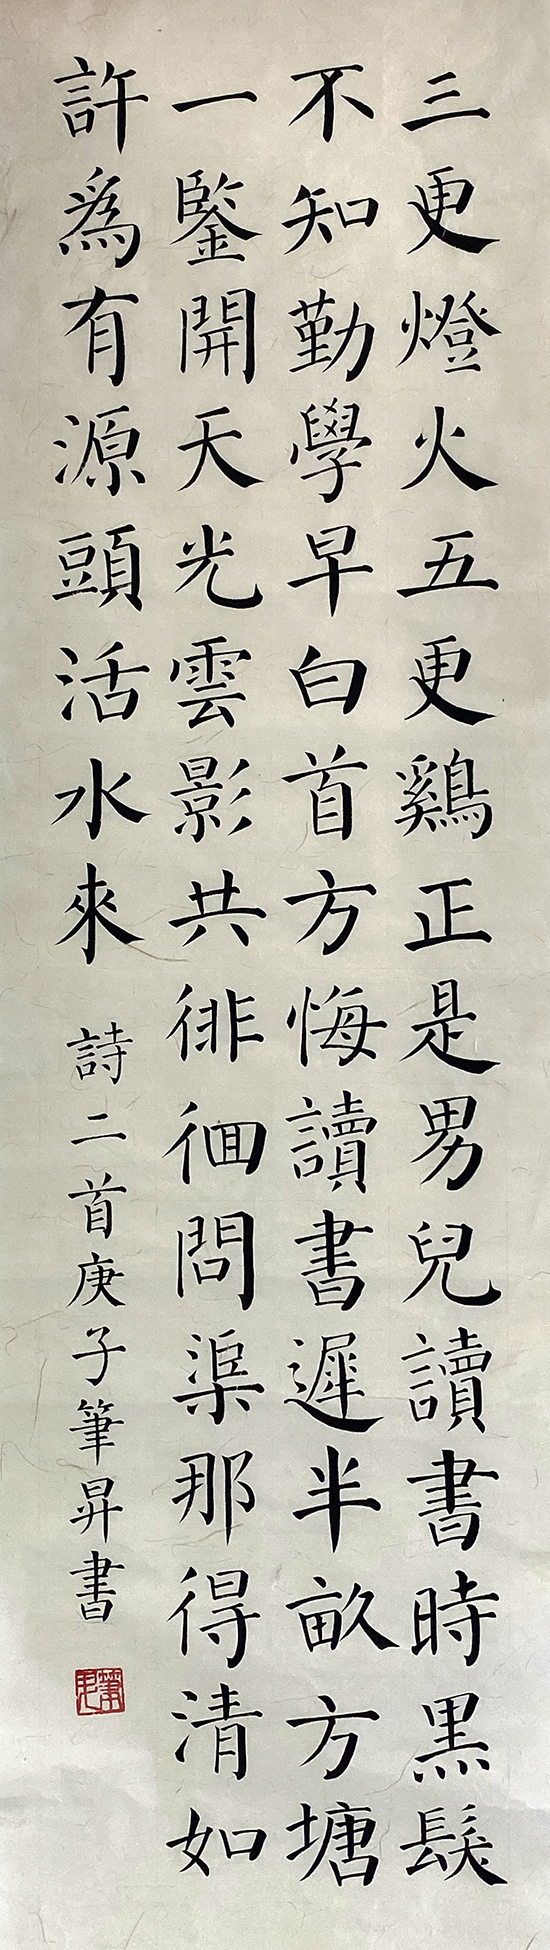 三更燈火五更鷄正是男兒讀書時黑髮
不知勤學早白首方悔讀書遲半畝方塘
一鑒開天光雲影共徘徊問渠那得清如
許爲有源頭活水來
詩二首庚子筆昇書